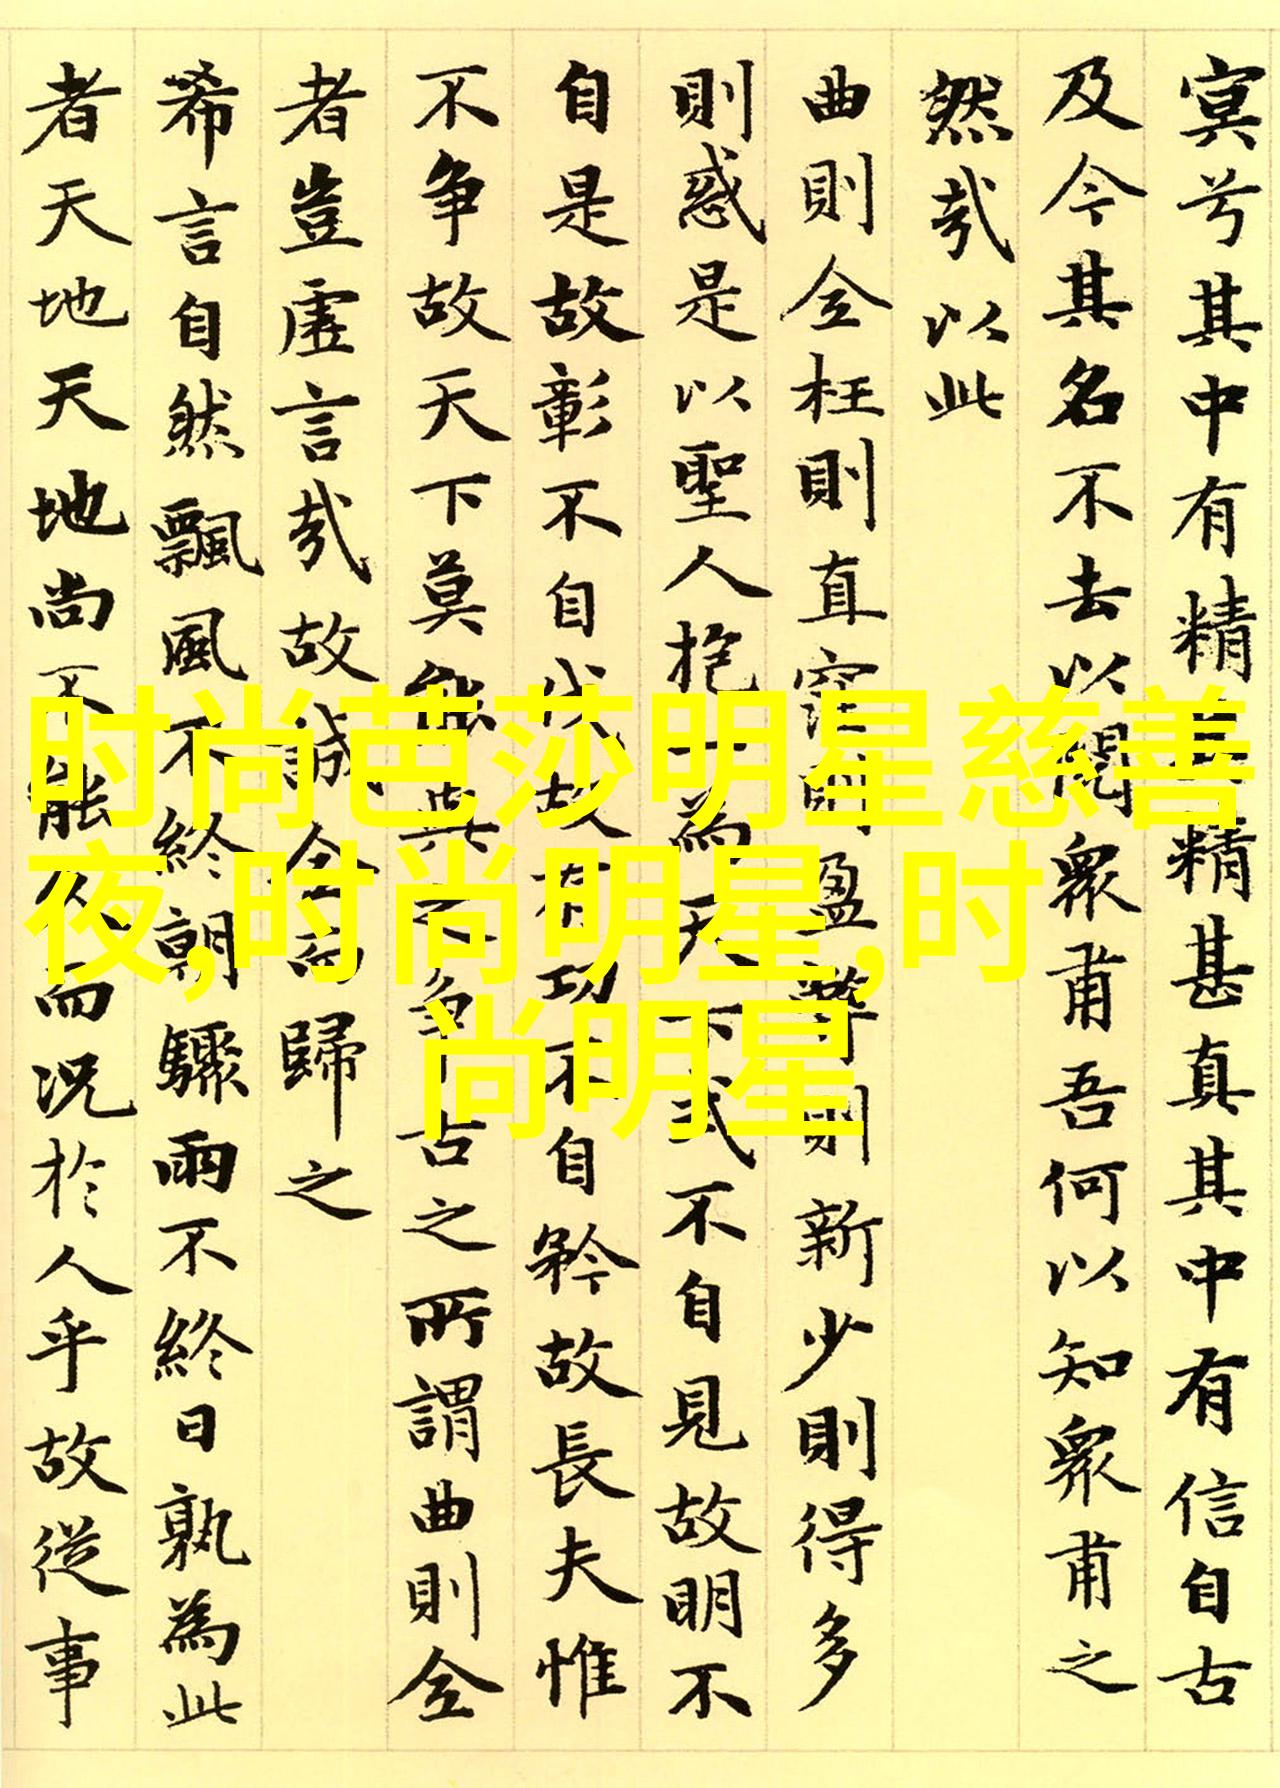 窈兮其中有精其精甚真其中有信自古
及今其名不去以閱衆甫吾何以知衆甫之
然哉以此
曲則全枉則直窪則盈弊則新少則得多
則惑是以聖人抱一為天下式不自見故明不
自是故彰不自伐故有功不自矜故長夫惟
不争故天下莫能與之争古之所謂曲則全
者豈虛言哉故誠全而歸之
希言自然飄風不終朝驟雨不終日孰為此
者天地天地尚不能久而況於人乎故從事
时尚芭莎明星慈善
夜,时尚明星,时
尚明星